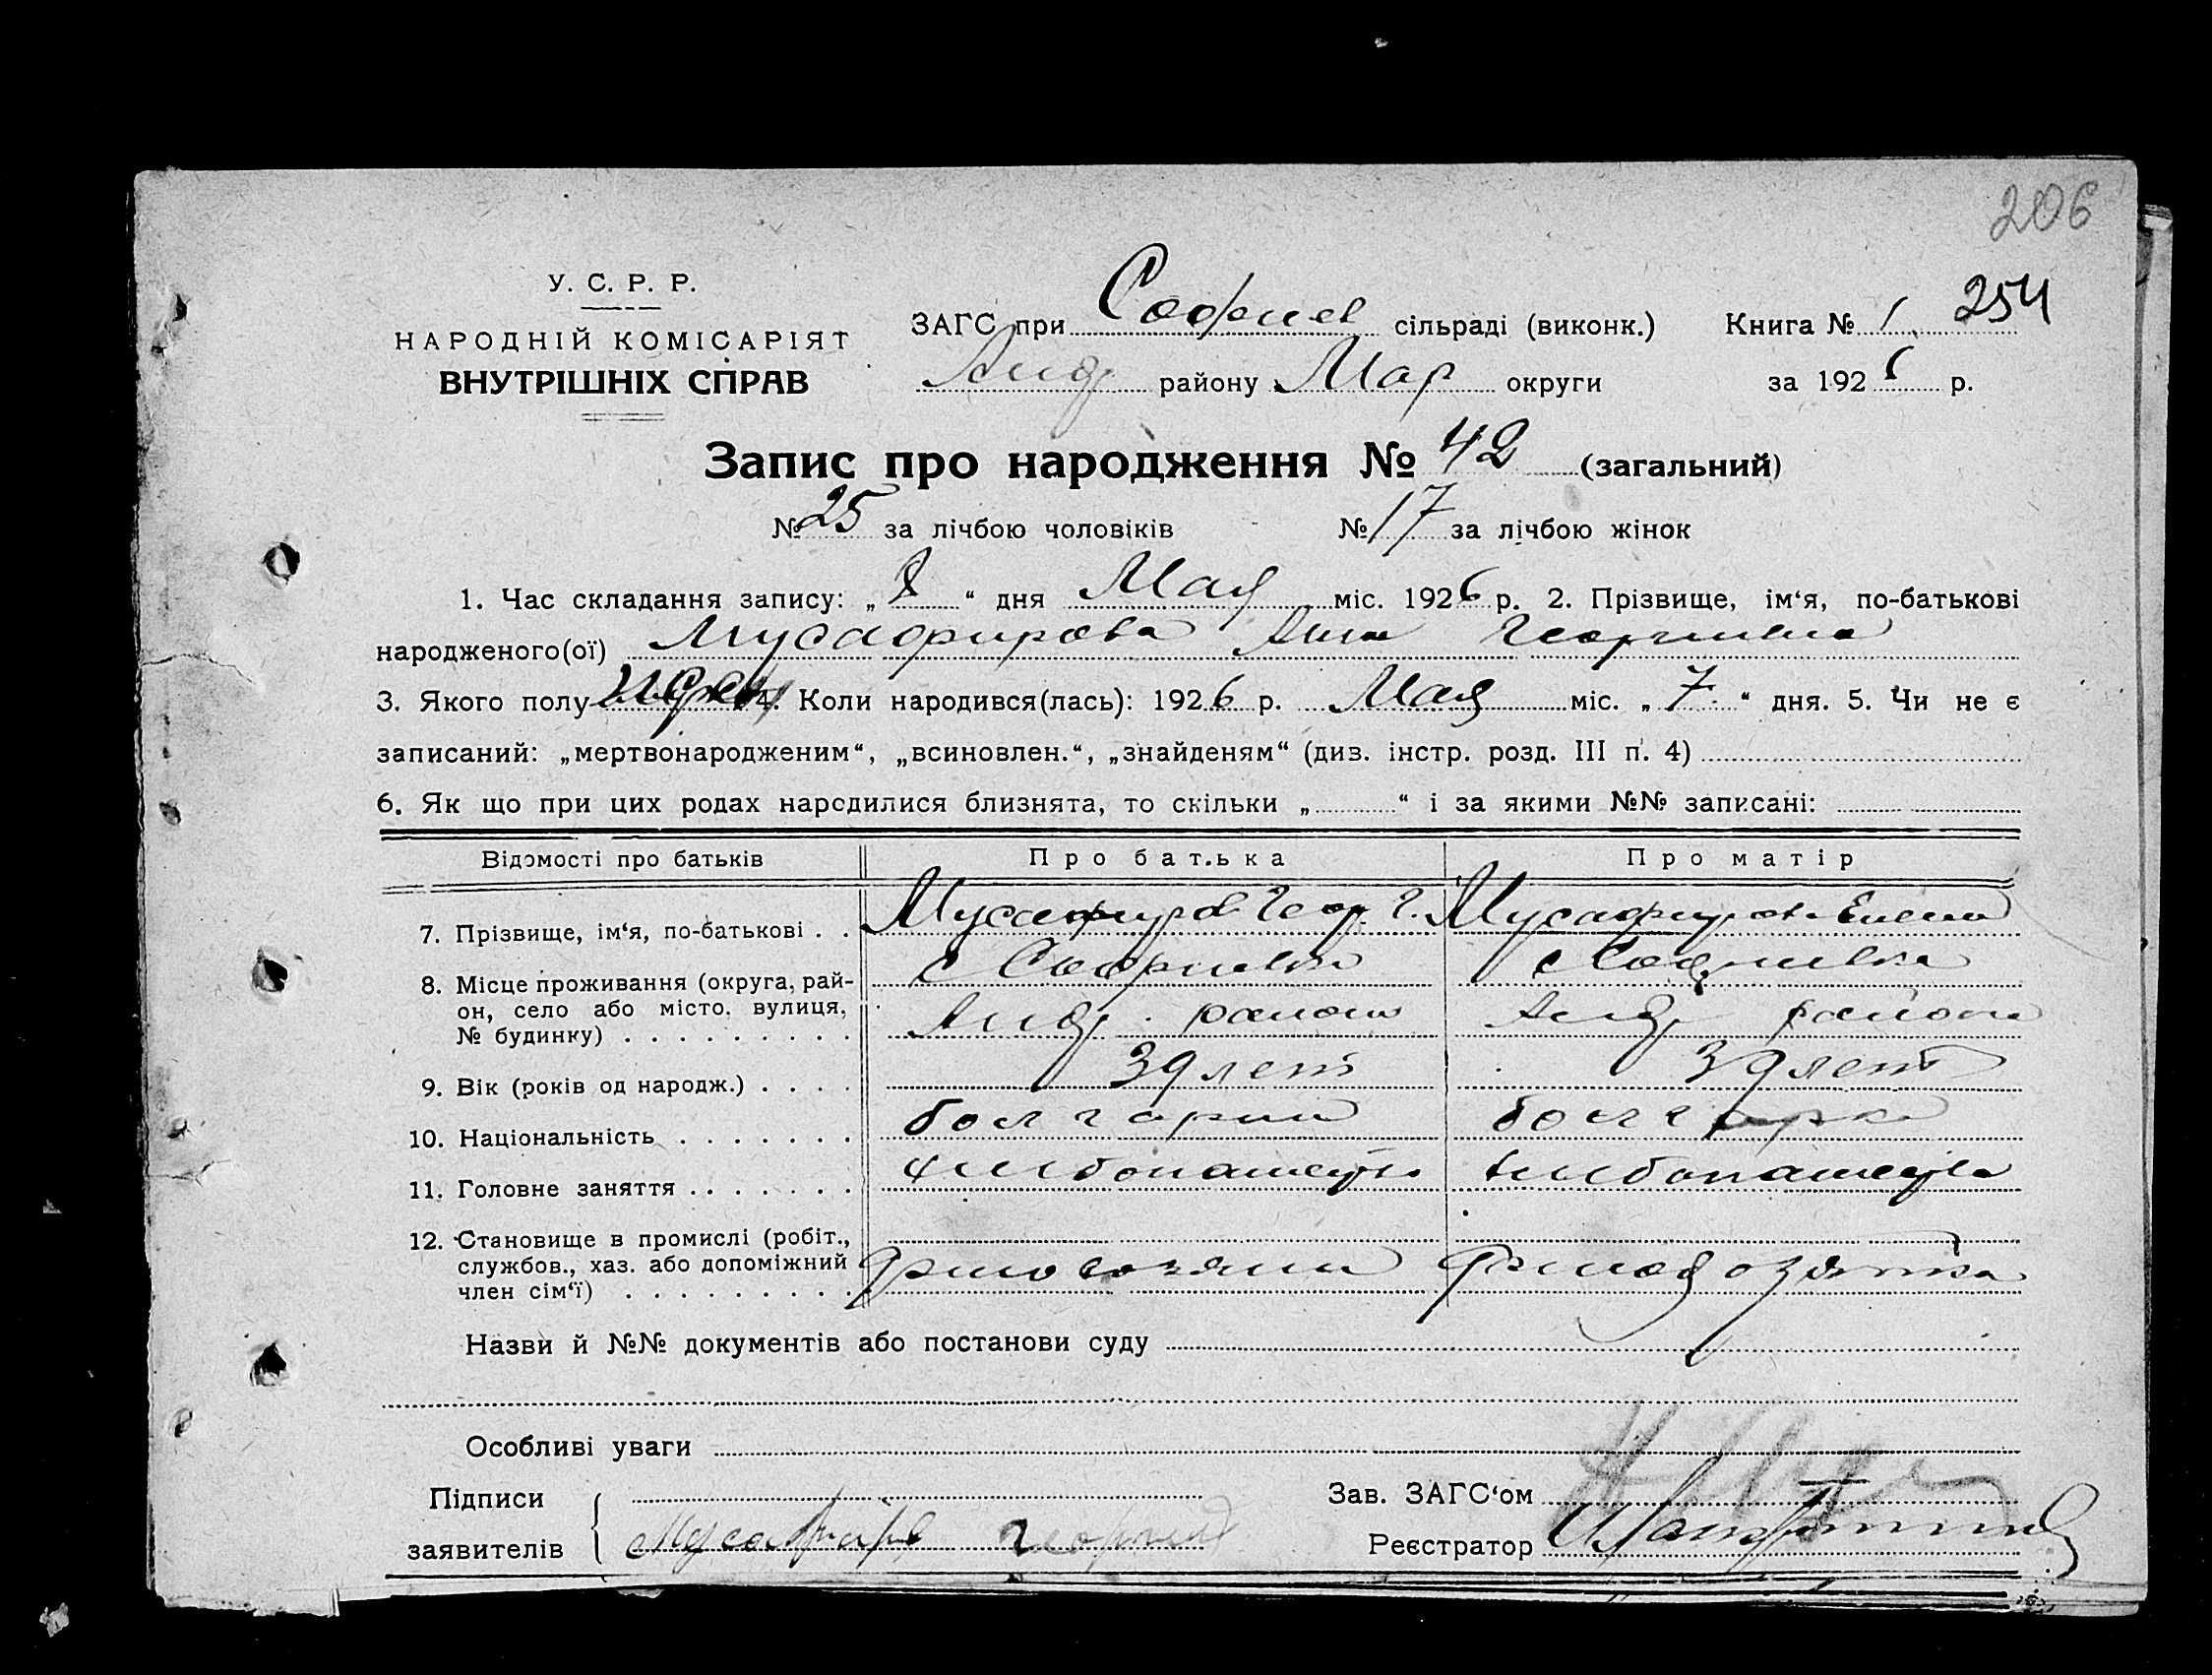 206
У. С. Р. Р.
НАРОДНІЙ КОМІСАРІЯТ
ВНУТРІШНІХ СПРАВ
ЗАГС при Софиев сільраді (виконк.) Книга № 1. 254
Анд району Мар округи за 1926 р.
Запис про народження № 42 (загальний)
№ 25 за лічбою чоловіків № 17 за лічбою жінок
1. Час складання запису: „8“ дня Мая міс. 1926 р. 2. Прізвище, ім‘я, по-батькові
народженого(ої) Мусафирова Анна Георгиевна
3. Якого полу 4. Коли народився(лась): 1926 р. Мая міс. „7.“ дня. 5. Чи не є
записаний: „мертвонародженим“, „всиновлен.“, „знайденям“ (див. інстр. розд. III п. 4)
6. Як що при цих родах народилися близнята, то скільки „ “ і за якими №№ записані:
Відомості про батьків Про батька Про матір
7. Прізвище, ім‘я, по-батькові . . Мусафиров Геор. Г. Мусафирова Елена
8. Місце проживання (округа, рай- с Софиевка с Софиевка
он, село або місто, вулиця, Анд. района Анд. района
№ будинку) . . . . . . . . .
9. Вік (років од народж.) . . . . 39 лет 39 лет
10. Національність . . . . . . . болгарин болгарка
11. Головне заняття . . . . . . . хлебопашество хлебопашество
12. Становище в промислі (робіт.,
службов., хаз. або допоміжний
член сім‘ї) . . . . . . . . .
Назви й №№ документів або постанови суду
Особливі уваги
Підписи Зав. ЗАГС‘ом
заявителів Мусафиров Георгий Реєстратор